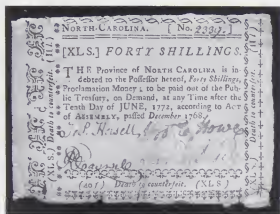 NORTH-CAROLINA. [ No.
[XLS.] FORTY SHILLINGS.
THE Province of NORTH CAROLINA is in-
debted to the Possessor hereof, Forty Shillings,
Proclamation Money; to be paid out of the Pub-
lic Treasury, on Demand, at any Time after the
Tenth Day of JUNE, 1772, according to ACT
of ASSEMBLY, passed December 1768.
(XLS.) Death to counterfeit.
(40s) Death to counterfeit. (XLS)